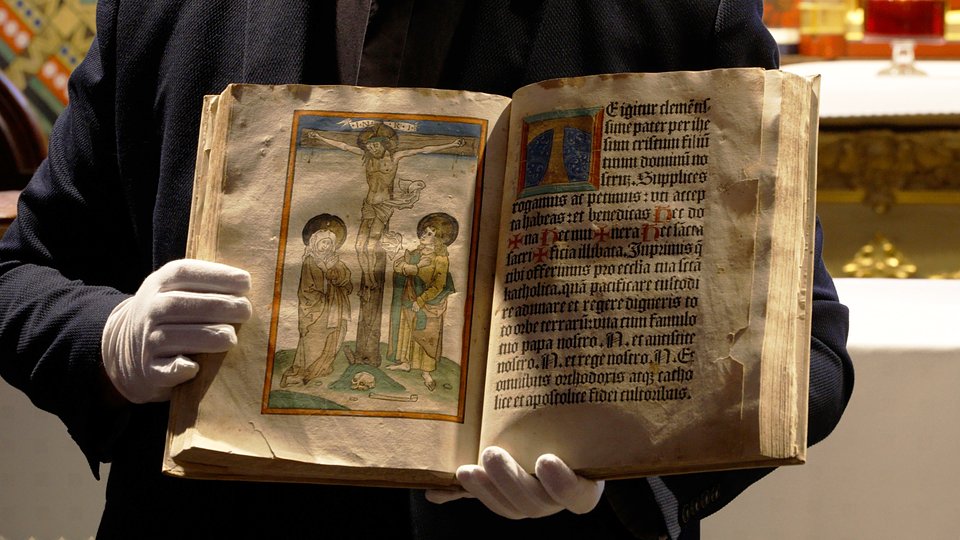 I·N·R·I
TE igitur clemẽtis
sime pater per ihe
sum cristum filiu
tuum dominũ no
strũ. Supplices
rogamus ac petimus: vti accep
ta habeas: et benedicas Hec do
✠na Hec mu✠nera Hec sãcta
sacri✠ficia illibata. Inprimis q̃
tibi offerimus pro ecclia tua scã
katholica. quã pacificare custodi
re adunare et regere digneris to
to orbe terrarũ vna cum famulo
tuo papa nostro .N. et antistite
nostro .N. et rege nostro .N. Et
omnibus orthodoxis atqz catho
lice et apostolice fidei cultoribus.